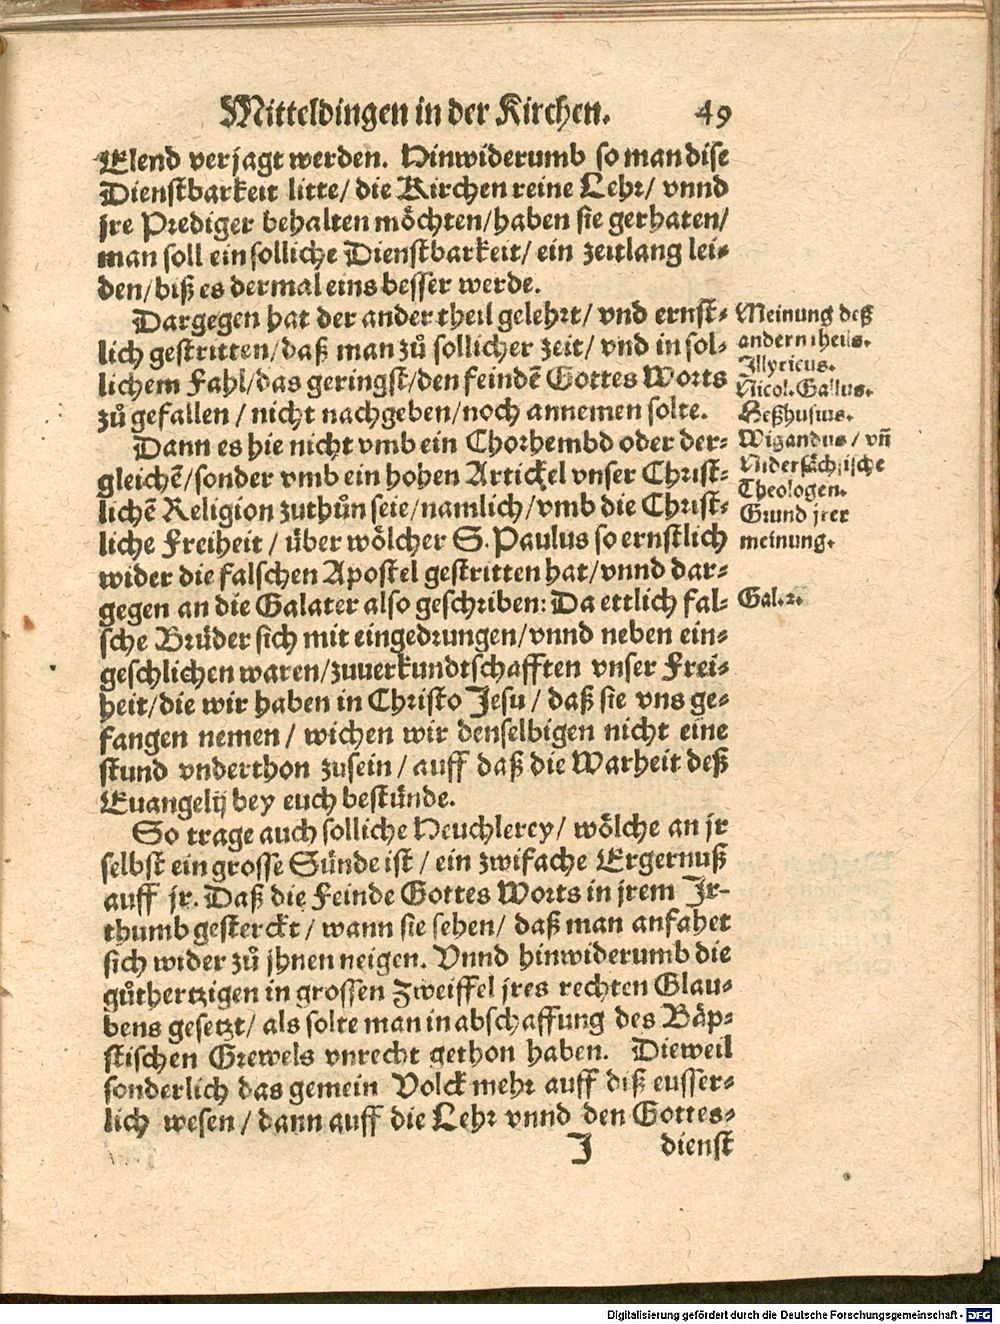 Mitteldingen in der Kirchen. 49
Elend verjagt werden. Hinwiderumb so man dise
Dienstbarkeit litte/ die Kirchen reine Lehr/ vnnd
jre Prediger behalten möchten/haben sie gerhaten/
man soll ein solliche Dienstbarkeit/ ein zeitlang lei-
den/biß es dermal eins besser werde.
Dargegen hat der ander theil gelehrt/ vnd ernst-
lich gestritten/daß man zů sollicher zeit/ vnd in sol-
lichem Fahl/das geringst/den feindē Gottes Worts
zů gefallen / nicht nachgeben/noch annemen solte.
Dann es hie nicht vmb ein Chorhembd oder der-
gleichē/sonder vmb ein hohen Artickel vnser Christ-
lichē Religion zuthůn seie/namlich/vmb die Christ-
liche Freiheit / über wölcher S. Paulus so ernstlich
wider die falschen Apostel gestritten hat/vnnd dar-
gegen an die Galater also geschriben: Da ettlich fal-
sche Brüder sich mit eingedrungen/vnnd neben ein-
geschlichen waren/zuuerkundtschafften vnser Frei-
heit/die wir haben in Christo Jesu / daß sie vns ge-
fangen nemen / wichen wir denselbigen nicht eine
stund vnderthon zusein / auff daß die Warheit deß
Euangelij bey euch bestünde.
So trage auch solliche Heuchlerey/ wölche an jr
selbst ein grosse Sünde ist / ein zwifache Ergernuß
auff jr. Daß die Feinde Gottes Worts in jrem Jr-
thumb gesterckt / wann sie sehen/ daß man anfahet
sich wider zů jhnen neigen. Vnnd hinwiderumb die
gůthertzigen in grossen Zweiffel jres rechten Glau-
bens gesetzt/ als solte man in abschaffung des Bäp-
stischen Grewels vnrecht gethon haben. Dieweil
sonderlich das gemein Volck mehr auff diß eusser-
lich wesen / dann auff die Lehr vnnd den Gottes-
J dienst
Meinung deß
andern theils.
Illyricus.
Nicol. Gallus.
Heßhusius.
Wigandus / vñ
Nidersächsische
Theologen.
Grund jrer
meinung.
Gal. 2.
Digitalisierung gefördert durch die Deutsche Forschungsgemeinschaft - DFG